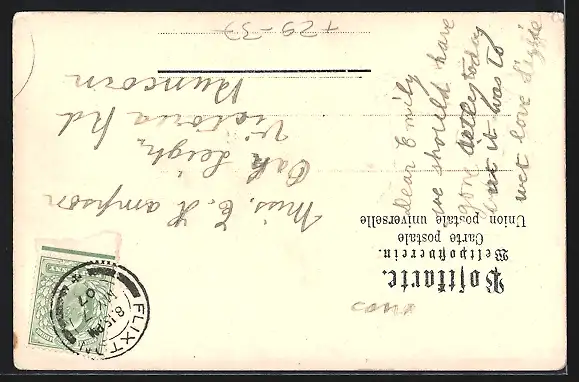 Postkarte.
Weltpostverein.
Carte postale
Union postale universelle
Miss. E. Sampson
Oak Leigh,
Victoria Rd
Runcorn
dear Emily
we should have
gone today
but it was to
wet love
FLIXTON
8.15 PM
07